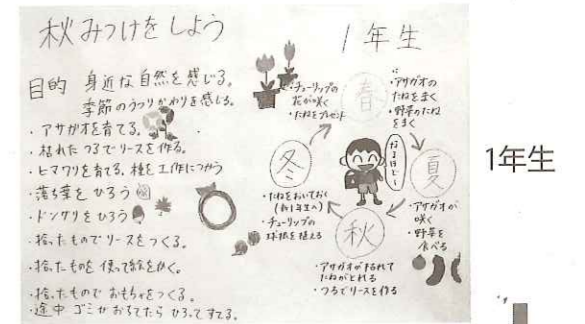 秋みつけをしよう
1年生
目的 身近な自然を感じる。
季節のうつりかわりを感じる。
・アサガオを育てる。
・枯れたつるでリースを作る。
・ヒマワリを育てる。種を工作につかう
・落ち葉をひろう
・ドングリをひろう
・拾ったものでリースをつくる。
・拾ったものを使って絵をかく。
・拾ったものでおもちゃをつくる。
・途中ゴミがおちてたらひろってすてる。
・チューリップの
花が咲く
・たねをプレゼント
春
・アサガオの
たねをまく
・野菜のたね
をまく
なるほどー
夏
・アサガオが
咲く
・野菜を
食べる
秋
・アサガオが枯れて
たねがとれる
・つるでリースを作る
冬
・たねをおいておく
(新1年生へ)
・チューリップの
球根を植える
1年生